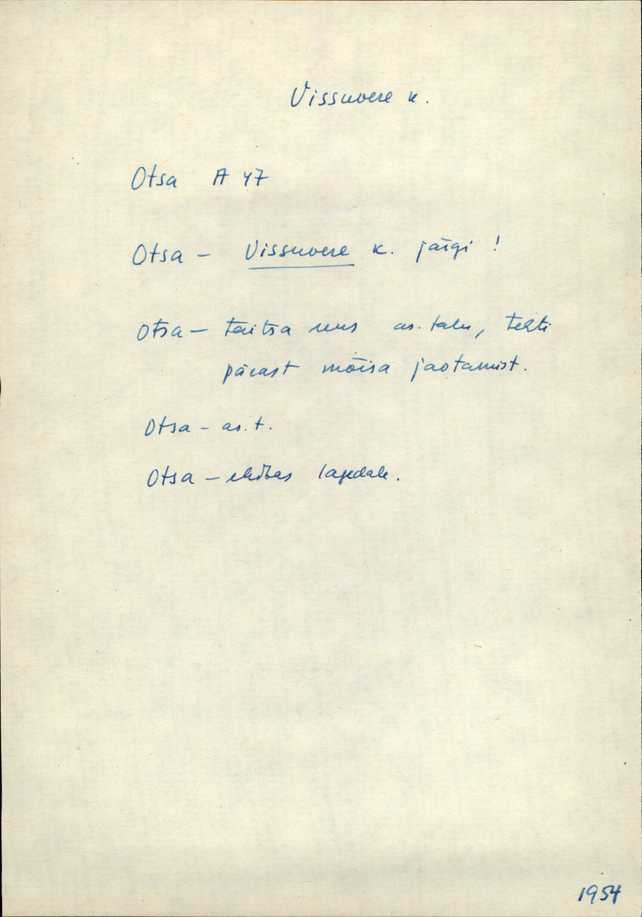 Vissuvere k.
Otsa A 47
Otsa – Vissuvere k. järgi !
Otsa – täitsa uus as. talu, tehti
pärast mõisa jaotamist.
Otsa – as. t.
Otsa – lagedale.
1954